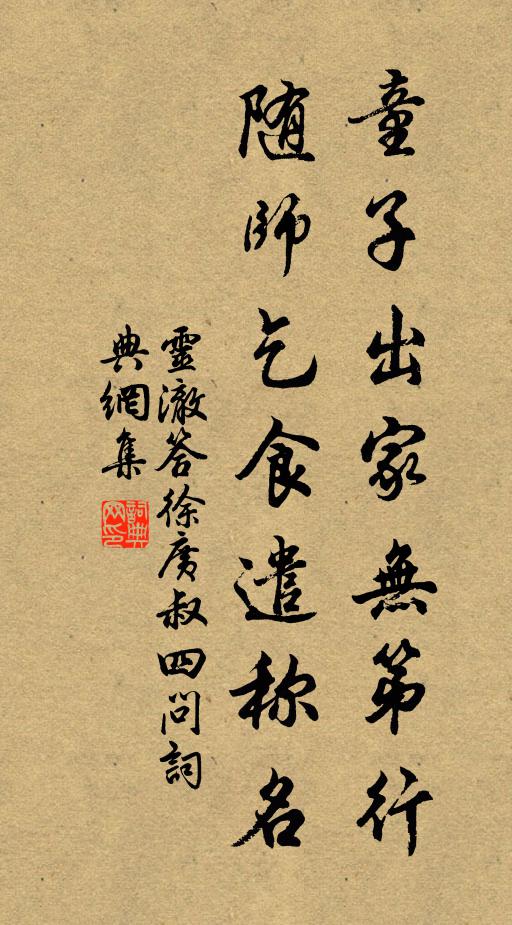 童子出家無第行
随師乞食遣称名
靈澈答徐廣叔四問詞
典網集
詞典網印